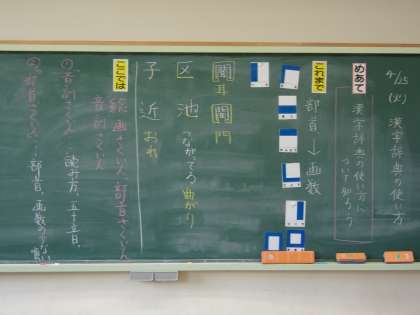 4/25
(火) 漢字辞典の使い方
めあて
漢字辞典の使い方に
ついて知ろう
これまで
部首→画数
聞 耳 門
区 池 つながてる 曲がり
子 近 おれ
ここでは
総画さくいん 部首さくいん
音訓さくいん
①音訓さくいん…読み方、五十音
②部首さくいん…部首、画数の少ない